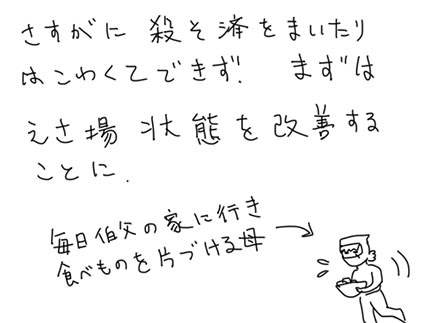 さすがに 殺そ済をまいたり
はこわくてできず! まずは
えさ場 状態を改善する
ことに.
毎日伯父の家に行き
食べものを片づける母